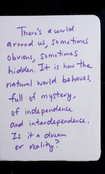 There's a world
around us, sometimes
obvious, sometimes
hidden. It is how the
natural world behaves,
full of mystery,
of independence
and interdependence.
Is it a dream
or reality?